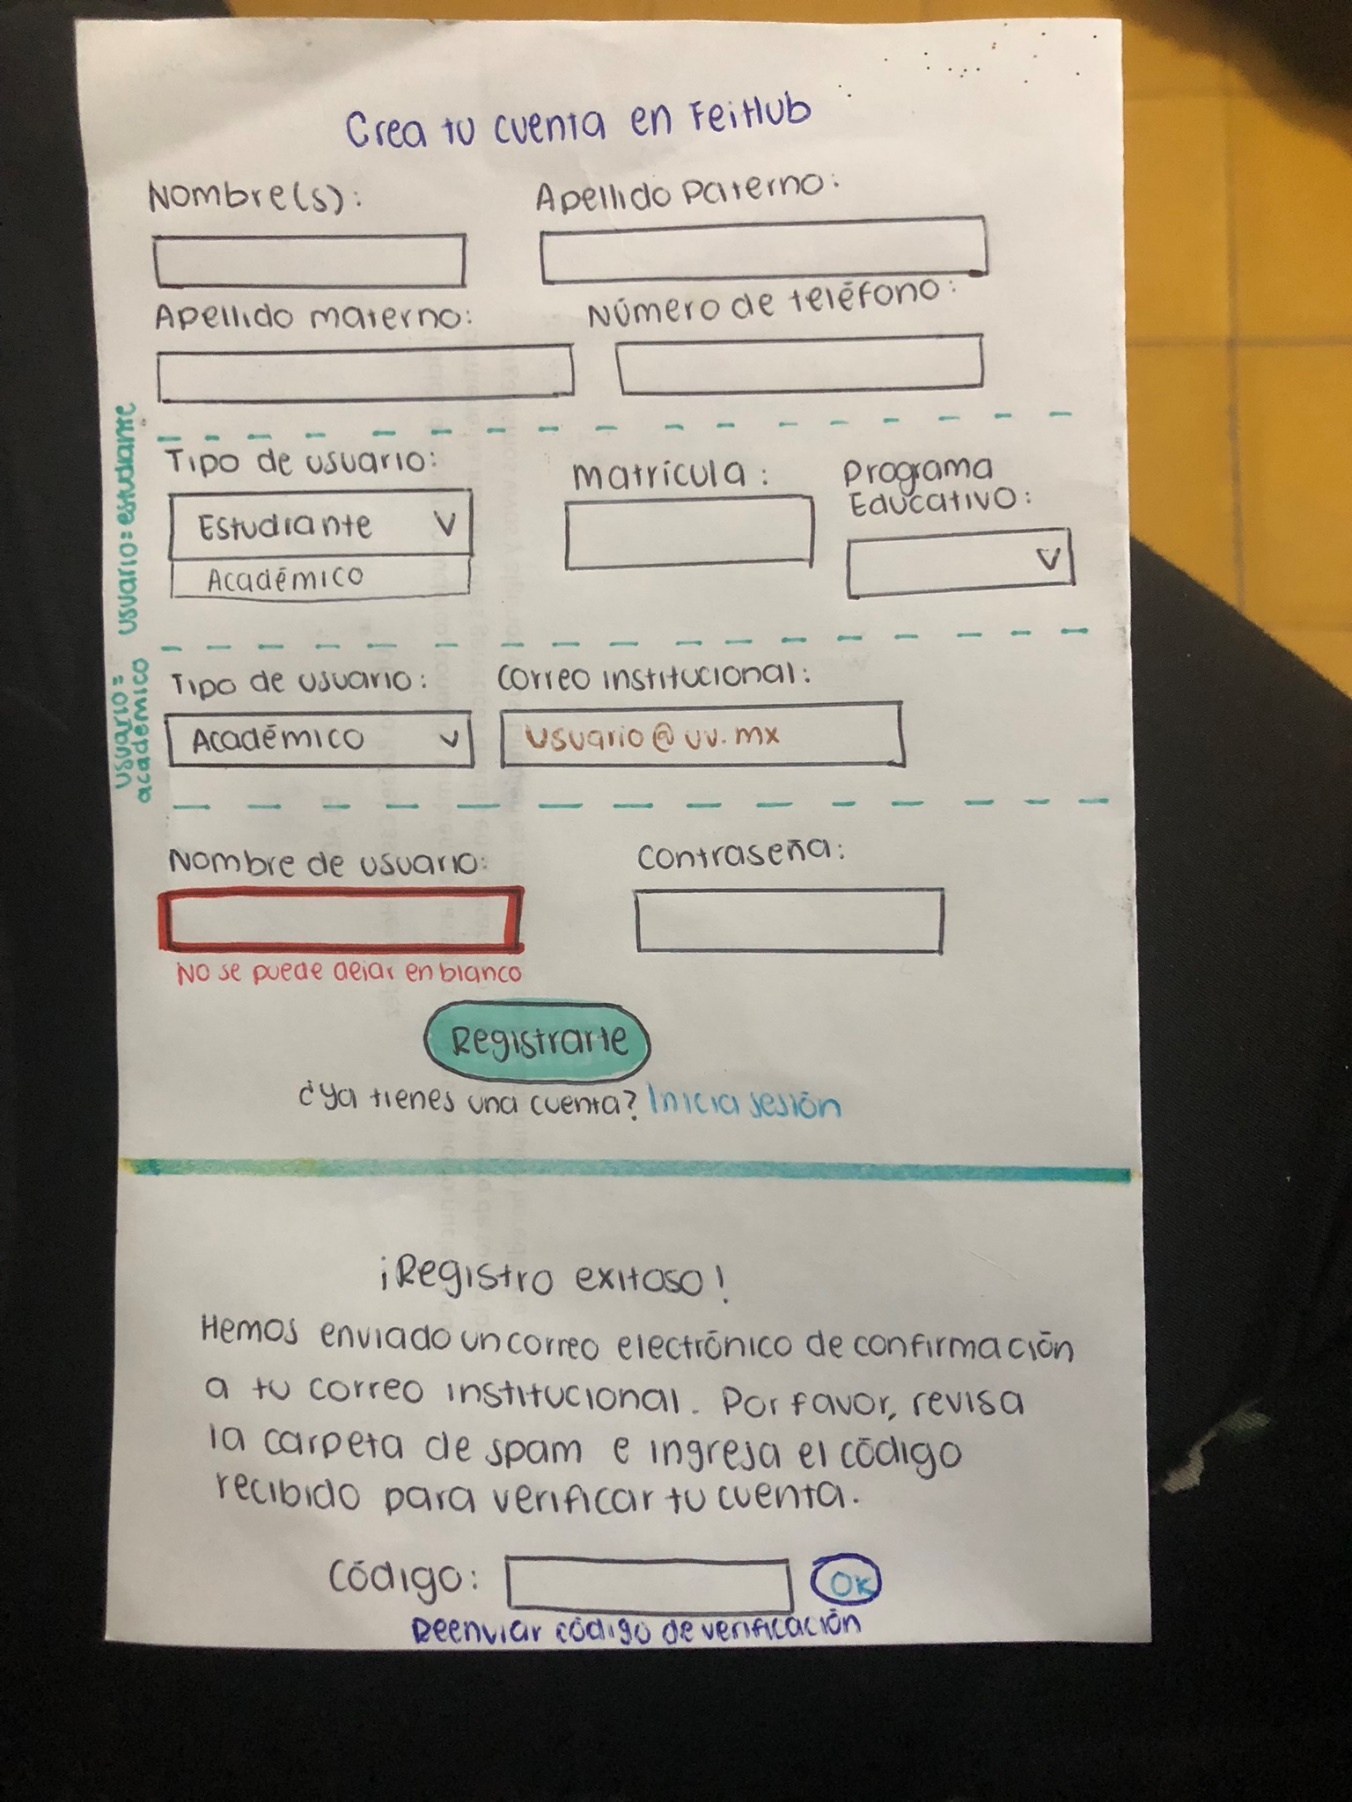 Crea tu cuenta en FeiHub
Nombre(s):
Apellido Paterno:
Apellido materno:
Número de teléfono:
usuario=estudiante
Tipo de usuario:
matrícula:
Programa
Educativo:
Estudiante V
Académico
V
usuario=
académico
Tipo de usuario:
Correo institucional:
Académico V
usuario@uv.mx
Nombre de usuario:
Contraseña:
No se puede dejar en blanco
Registrarte
¿Ya tienes una cuenta? Inicia sesión
¡Registro exitoso!
Hemos enviado un correo electrónico de confirmación
a tu correo institucional. Por favor, revisa
la carpeta de spam e ingresa el código
recibido para verificar tu cuenta.
Código: OK
Reenviar código de verificación